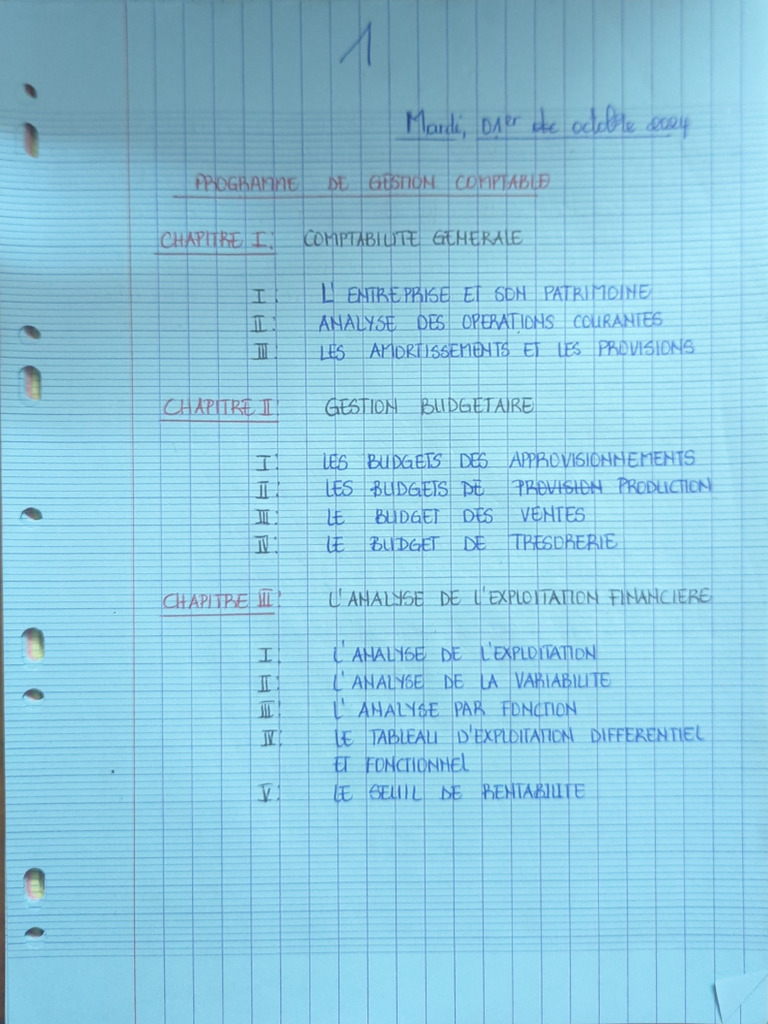 1
Mardi, 01er de octobre 2024
PROGRAMME DE GESTION COMPTABLE
CHAPITRE I: COMPTABILITE GENERALE
I: L'ENTREPRISE ET SON PATRIMOINE
II: ANALYSE DES OPERATIONS COURANTES
III: LES AMORTISSEMENTS ET LES PROVISIONS
CHAPITRE II: GESTION BUDGETAIRE
I: LES BUDGETS DES APPROVISIONNEMENTS
II: LES BUDGETS DE PROVISION PRODUCTION
III: LE BUDGET DES VENTES
IV: LE BUDGET DE TRESORERIE
CHAPITRE III: L'ANALYSE DE L'EXPLOITATION FINANCIERE
I: L'ANALYSE DE L'EXPLOITATION
II: L'ANALYSE DE LA VARIABILITE
III: L'ANALYSE PAR FONCTION
IV: LE TABLEAU D'EXPLOITATION DIFFERENTIEL
ET FONCTIONNEL
V: LE SEUIL DE RENTABILITE